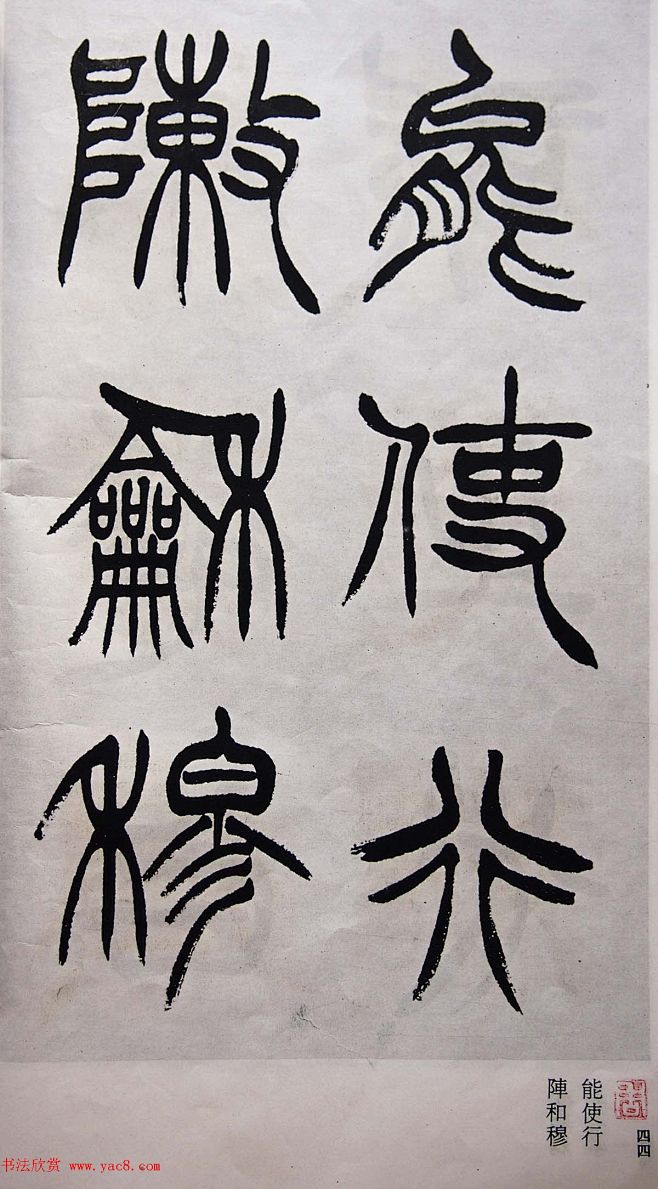 能使行
敶龢穆
能使行
陣和穆
四四
书法欣赏 www.yac8.com